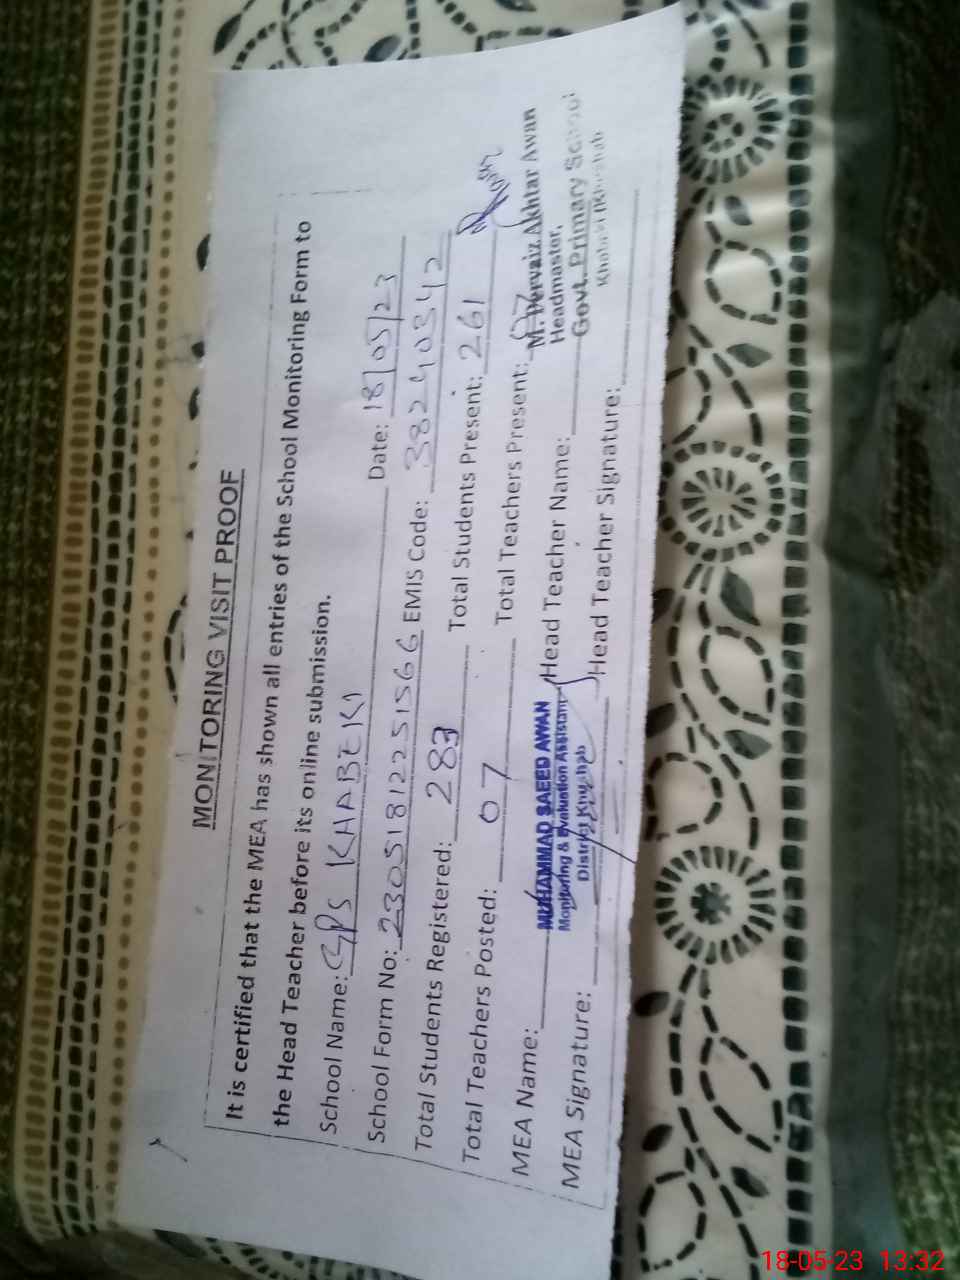 MONITORING VISIT PROOF
It is certified that the MEA has shown all entries of the School Monitoring Form to
the Head Teacher before its online submission.
School Name: GPS KHABEKI Date: 18/05/23
School Form No: 23051812251566 EMIS Code: 38240342
Total Students Registered: 283 Total Students Present: 261
Total Teachers Posted: 07 Total Teachers Present: 07
MEA Name: MUHAMMAD SAEED AWAN Head Teacher Name: M. Pervaiz Akhtar Awan
Monitoring & Evaluation Assistant Headmaster,
District Khushab Govt. Primary School
MEA Signature: Head Teacher Signature: Khabeki (Khushab
18-05-23 13:32